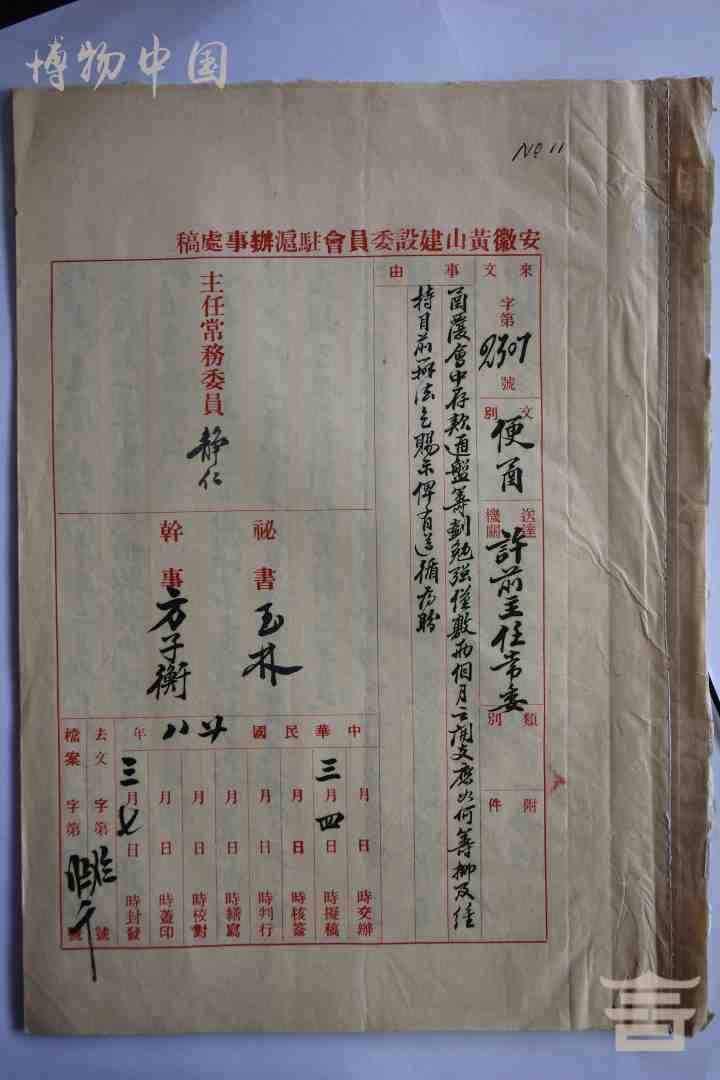 博物中国
No 11
安徽黃山建設委員會駐滬辦事處稿
來文 字第 號
事由
函覆會中存款通盤籌劃勉強僅敷兩個月之開支應如何籌措及維
持目前辦法乞賜示俾有遵循為盼
文別 便函
送達機關 許前主任常委
類別
附件
主任常務委員 靜仁
祕書 玉林
幹事 方子衡
中華民國廿八年
月 日 時交辦
三月四日 時擬稿
月 日 時核簽
月 日 時判行
月 日 時繕寫
月 日 時校對
月 日 時蓋印
三月七日 時封發
去文 字第 號
檔案 字第 號